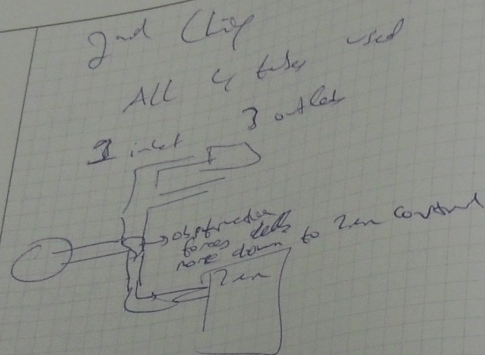 2nd Chip
All 4 tubes used
1 inlet 3 outlet
obstruction
forces cells
more down to 2nn control